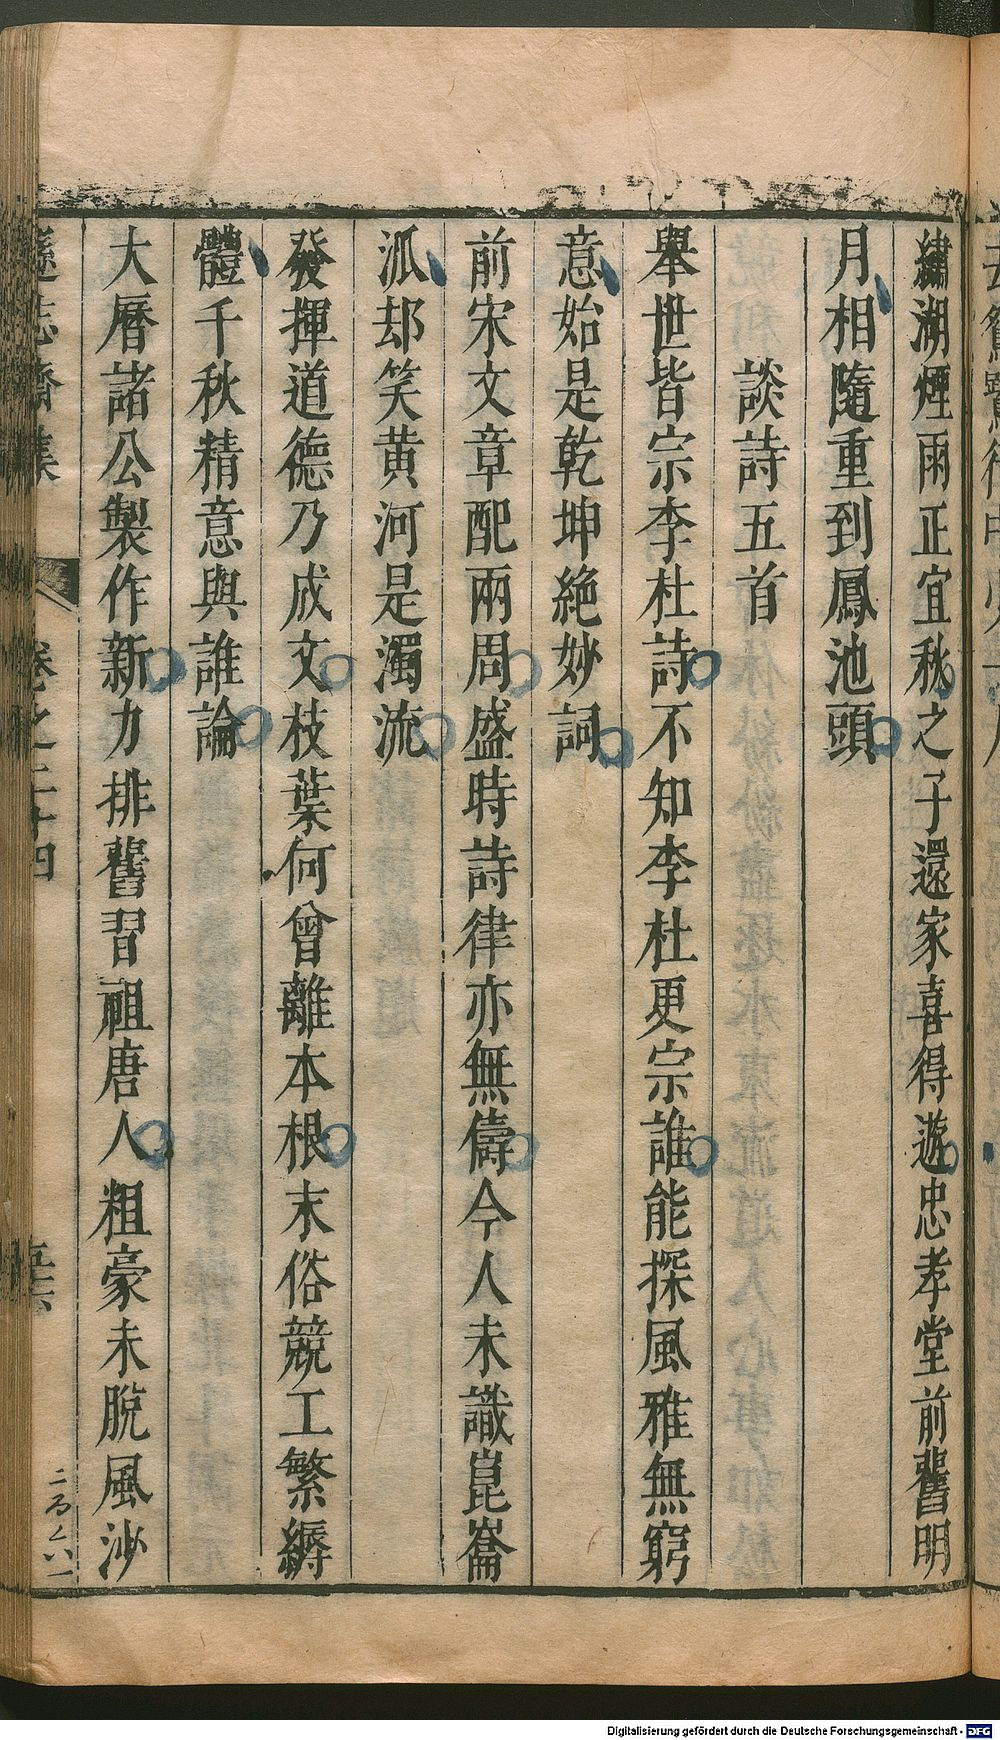 繡湖煙雨正宜秋之子還家喜得遊忠孝堂前舊明
月相隨重到鳳池頭
談詩五首
舉世皆宗李杜詩不知李杜更宗誰能探風雅無窮
意始是乾坤絶妙詞
前宋文章配兩周盛時詩律亦無儔今人未識崑崙
派却笑黄河是濁流
發揮道德乃成文枝葉何曾離本根末俗競工繁縟
體千秋精意與誰論
大曆諸公製作新力排舊習祖唐人粗豪未脫風沙
遜志齋集
卷之二十四
五六
Digitalisierung gefördert durch die Deutsche Forschungsgemeinschaft - DFG